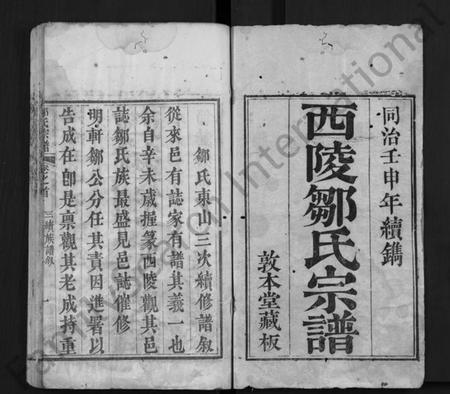 同治壬申年續鐫
西陵鄒氏宗譜
敦本堂藏板
鄒氏東山三次續修譜叙
從來邑有誌家有譜其義一也
余自辛未歲握篆西陵觀其邑
誌鄒氏族最盛見邑誌催修
明軒鄒公分任其責因進署以
告成在卽是禀觀其老成持重
氏宗譜
卷之首
三續族譜叙
一
International